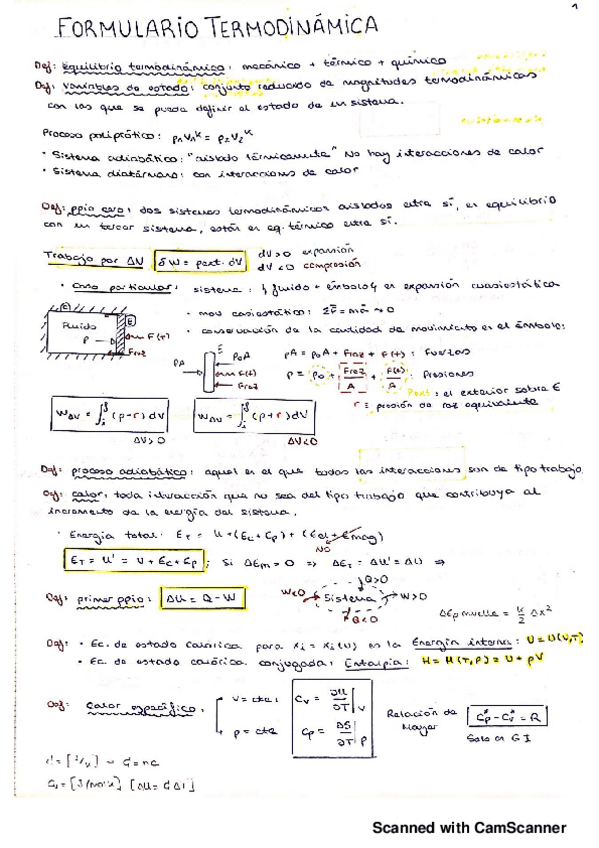 1
FORMULARIO TERMODINÁMICA
Def: equilibrio termodinámico: mecánico + térmico + químico
Def: variables de estado: conjunto reducido de magnitudes termodinámicas
con las que se puede definir el estado de un sistema.
Proceso poliprótico: p₁V₁ᵏ = p₂V₂ᵏ
• Sistema adiabático: "aislado térmicamente" No hay interacciones de calor
• Sistema diatérmano: con interacciones de calor
Def: ppio cero: dos sistemas termodinámicos aislados entre sí, en equilibrio
con un tercer sistema, están en eq. térmico entre sí.
Trabajo por ΔV δW = pext. dV dV>0 expansión
dV<0 compresión
• Caso particular: sistema: { fluido + émbolo } en expansión cuasiestática
Fluido P E F(t) Froz
• mov cuasiestático: ΣF = ma → 0
• conservación de la cantidad de movimiento en el émbolo:
PA E p₀A F(t) Froz
pA = p₀A + Froz + F(t) : Fuerzas
p = p₀ + Froz/A + F(t)/A : Presiones
Pext: el exterior sobre E
r = presión de roz equivalente
W_ΔV = ∫ᵢᶠ (p-r) dV W_ΔV = ∫ᵢᶠ (p+r) dV
ΔV>0 ΔV<0
Def: proceso adiabático: aquel en el que todas las interacciones son de tipo trabajo
Def: calor: toda interacción que no sea del tipo trabajo que contribuya al
incremento de la energía del sistema.
• Energía total: E_T = U + (Ec + Ep) + (Eel + Emag)
NO
E_T = U' = U + Ec + Ep ; Si ΔEm = 0 ⇒ ΔE_T = ΔU' = ΔU ⇒
Def: primer ppio: ΔU = Q - W
W<0 Sistema Q>0 W>0 Q<0
ΔEp muelle = k/2 Δx²
Def: • Ec. de estado calórica para xᵢ = xᵢ(U) es la Energía interna: U = U(V,T)
• Ec. de estado calórica conjugada: Entalpía: H = H(T,P) = U + pV
Def: Calor específico:
V = cte: Cv = ∂U/∂T|V
p = cte Cp = ∂S/∂T|P
Relación de
Mayer
Cp* - Cv* = R
Solo en GI
[ΔU = C ΔT]
Scanned with CamScanner